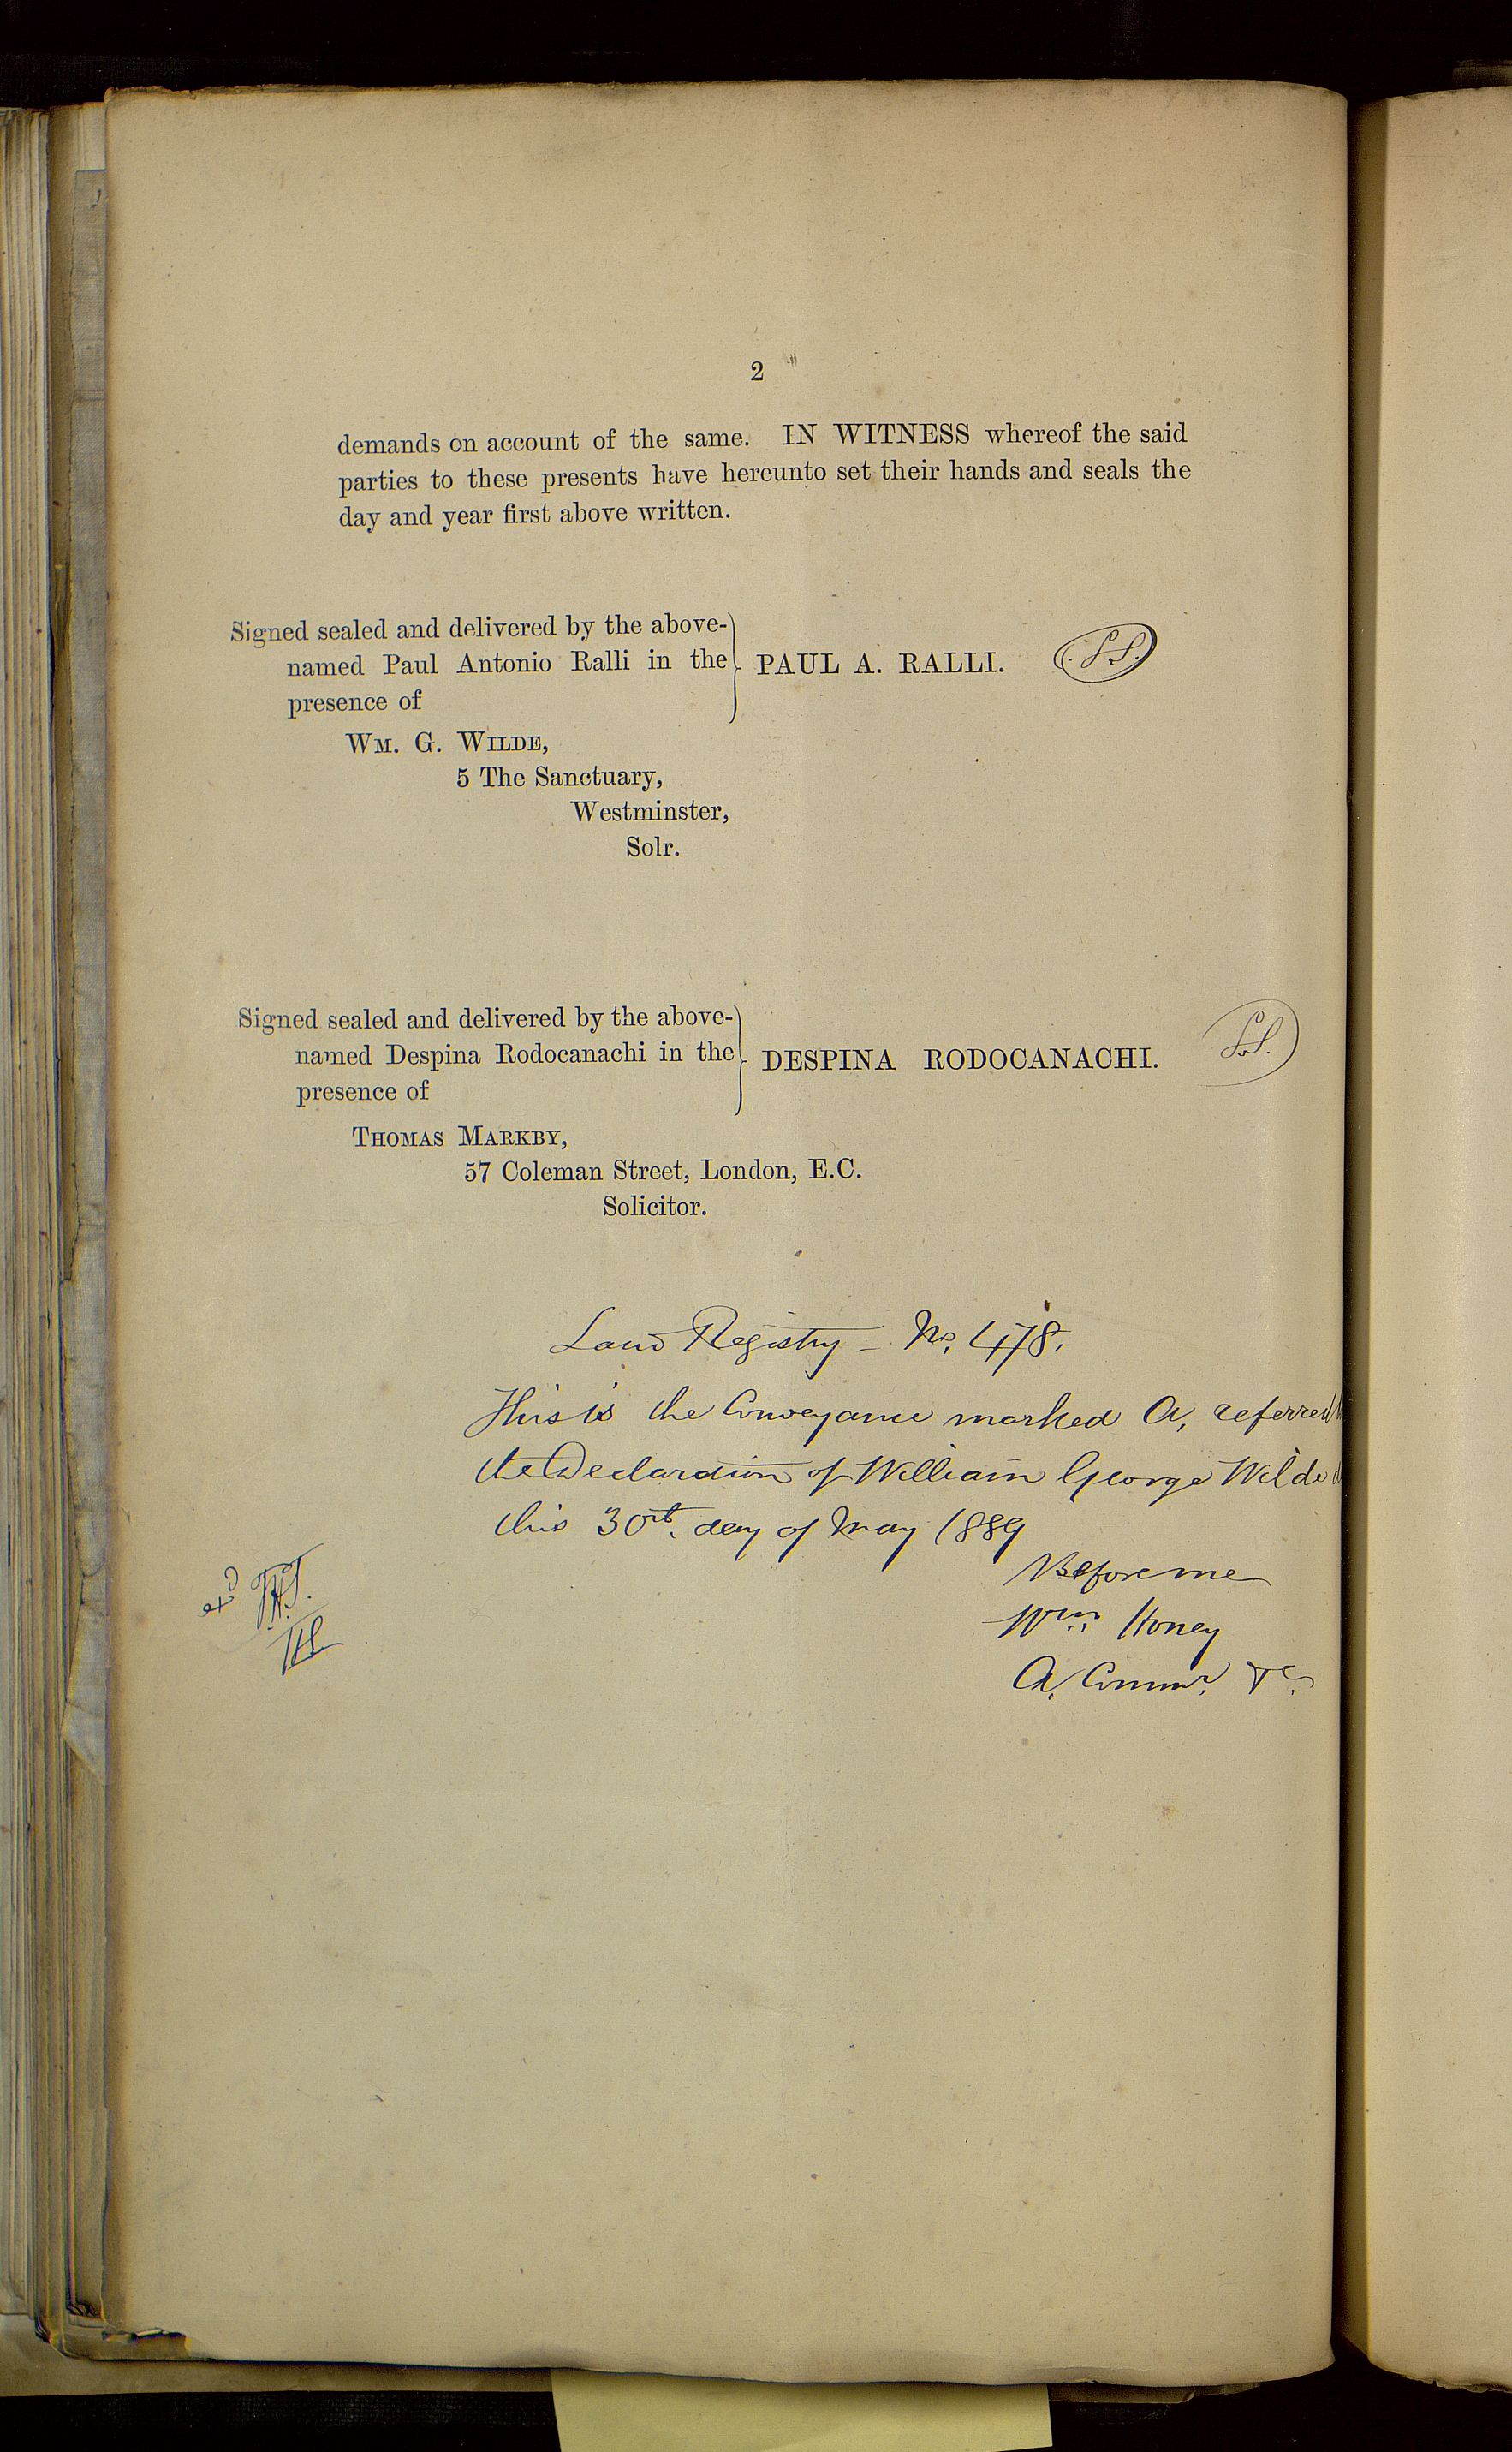 2
demands on account of the same. IN WITNESS whereof the said
parties to these presents have hereunto set their hands and seals the
day and year first above written.
Signed sealed and delivered by the above-
named Paul Antonio Ralli in the
presence of
PAUL A. RALLI.
L.S.
WM. G. WILDE,
5 The Sanctuary,
Westminster,
Solr.
Signed sealed and delivered by the above-
named Despina Rodocanachi in the
presence of
DESPINA RODOCANACHI.
L.S.
THOMAS MARKBY,
57 Coleman Street, London, E.C.
Solicitor.
Land Registry – No. 478.
This is the Conveyance marked A, referred
the Declaration of William George Wilde
this 30th. day of May 1889
Before me
Wm. Honey
A. Commr. &c.
exd